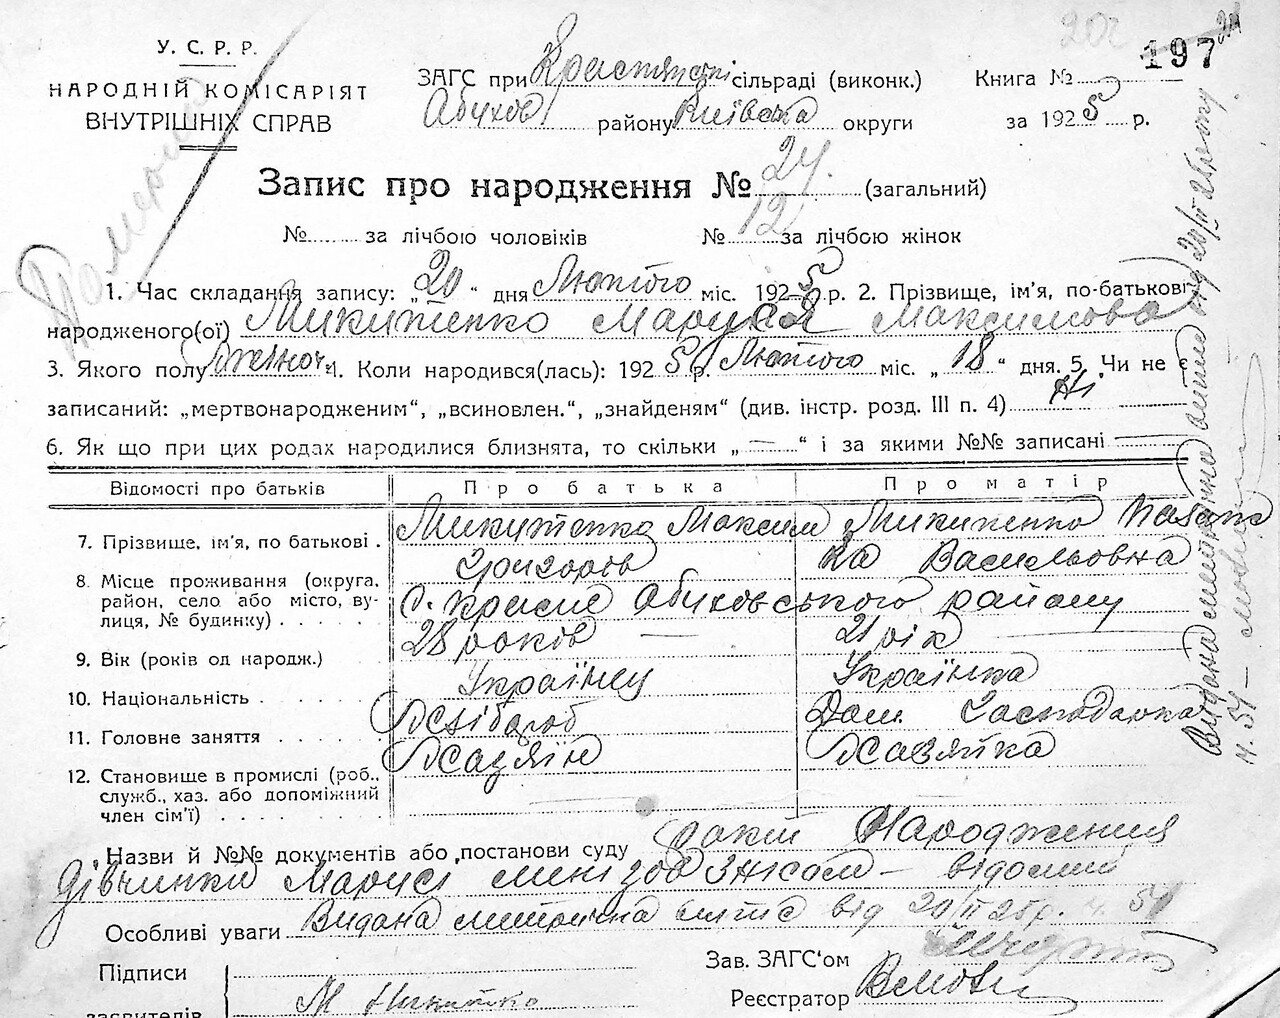 197
У. С. Р. Р.
НАРОДНІЙ КОМІСАРІЯТ
ВНУТРІШНІХ СПРАВ
ЗАГС при сільраді (виконк.)
Книга №
району Київська округи
за 1925 р.
Запис про народження № 24. (загальний)
№ за лічбою чоловіків № 12 за лічбою жінок
1. Час складання запису: „20“ дня Лютого міс. 1925 р. 2. Прізвище, ім'я, по-батькові
народженого(ої) Микитенко Маруся Максимова
3. Якого полу жіноч. 4. Коли народився(лась): 1925 р. Лютого міс. „18“ дня. 5. Чи не є
записаний: „мертвонародженим“, „всиновлен.“, „знайденям“ (див. інстр. розд. III п. 4) Ні
6. Як що при цих родах народилися близнята, то скільки „—“ і за якими №№ записані —
Відомості про батьків Про батька Про матір
7. Прізвище, ім'я, по батькові . Микитенко Максим Григоров Микитенко Васильовна
8. Місце проживання (округа, район, село або місто, вулиця, № будинку) . . . . с. Красне Обуховського району
9. Вік (років од народж.) 28 років 21 рік
10. Національність . . . . . Українец Українка
11. Головне заняття . . . . . Хлібороб Дом. Господарка
12. Становище в промислі (роб., служб., хаз. або допоміжний член сім'ї) . . . . . Хазяїн Хазяйка
Назви й №№ документів або постанови суду факт Народження
дівчинки Марусі мені зов Загсом відомий
Особливі уваги Видана метрична від 20/II 25 р. ч. 51
Підписи
завітелів
Зав. ЗАГС'ом
Реєстратор